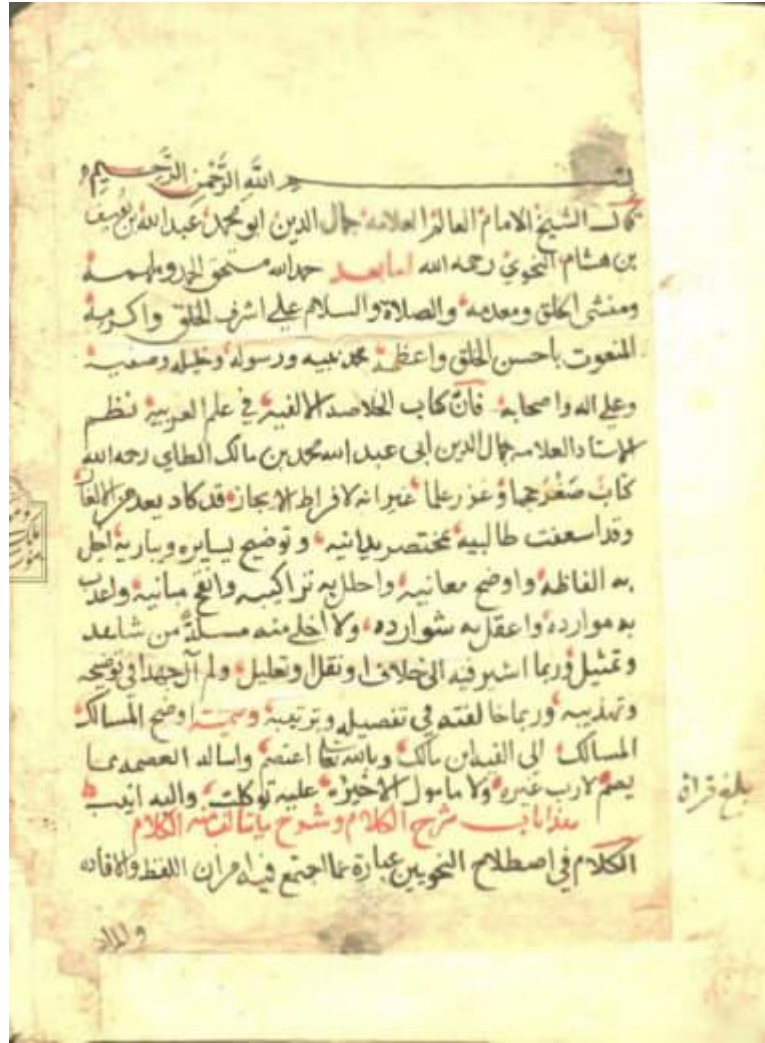 بسم الله الرحمن الرحيم و
قال الشيخ الامام العالم العلامه جمال الدين ابو محمد عبد الله بن يوسف
بن هشام النحوي رحمه الله اما بعد حمد الله مستحق الحمد وملهمه
ومنشى الخلق ومعدمه والصلاة والسلام على اشرف الخلق واكرمه
المنعوت باحسن الخلق واعظمه محمد نبيه ورسوله وخليله وصفيه
وعلى اله واصحابه فان كتاب الخلاصه الالفية في علم العربية نظم
الاستاد العلامه جمال الدين ابى عبد الله محمد بن مالك الطاي رحمه الله
كتاب صغر حجما وغزر علما غير انه لافراط الايجاز قد كاد يعد من الالغاز
وقد اسعفت طالبيه بمختصر يدانيه وتوضيح يسايره ويباريه احل
به الفاظه واوضح معانيه واحلل به تراكيبه وانقح مبانيه واعذب
به موارده واعقل به شوارده ولا اخلى منه مسلة من شاهد
وتمثيل وربما اشير فيه الى خلاف او نقل وتعليل ولم آل جهدا في توضيحه
وتهذيبه وربما خالفته في تفصيله وترتيبه وسميته اوضح المسالك
المسالك الى الفية ابن مالك وبالله تعا اعتصم واساله العصمه مما
يصم لا رب غيره ولا مامول الا خيره عليه توكلت واليه انيب
هذا باب شرح الكلام وشرح ما يتالف منه الكلام
الكلام في اصطلاح النحويين عبارة عما اجتمع فيه امران اللفظ والافاده
والمراد
بلغ قراة